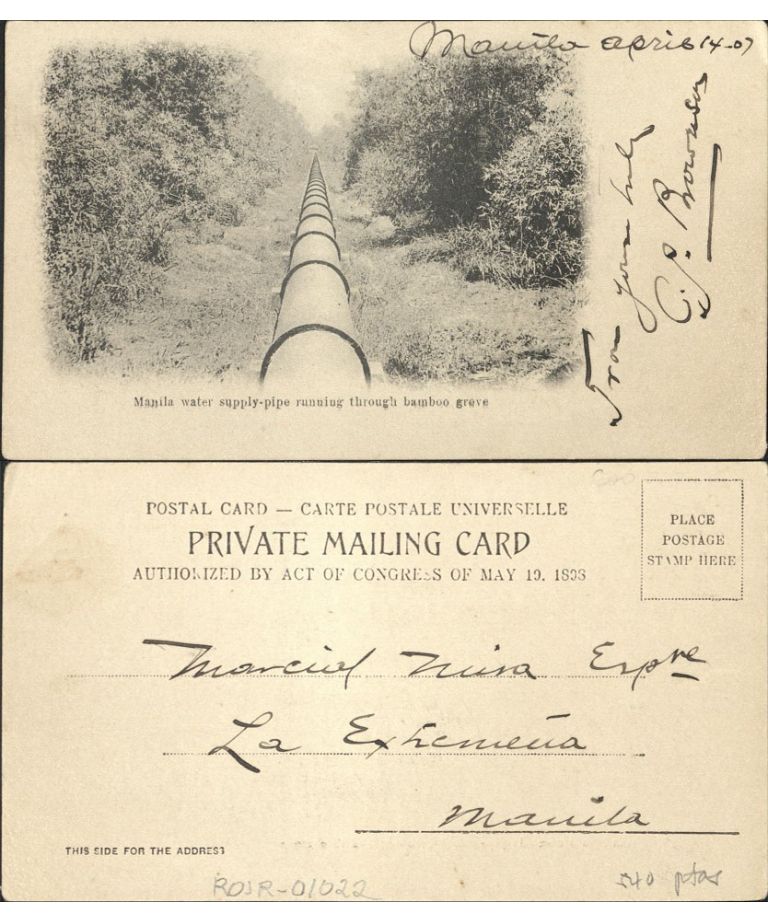 Manila April 14-07
From yours truly
C.P.
Manila water supply-pipe running through bamboo grove
POSTAL CARD — CARTE POSTALE UNIVERSELLE
PRIVATE MAILING CARD
AUTHORIZED BY ACT OF CONGRESS OF MAY 19. 1898
PLACE
POSTAGE
STAMP HERE
Marcial
La Extremeña
Manila
THIS SIDE FOR THE ADDRESS
ROJR-01022
540 ptas